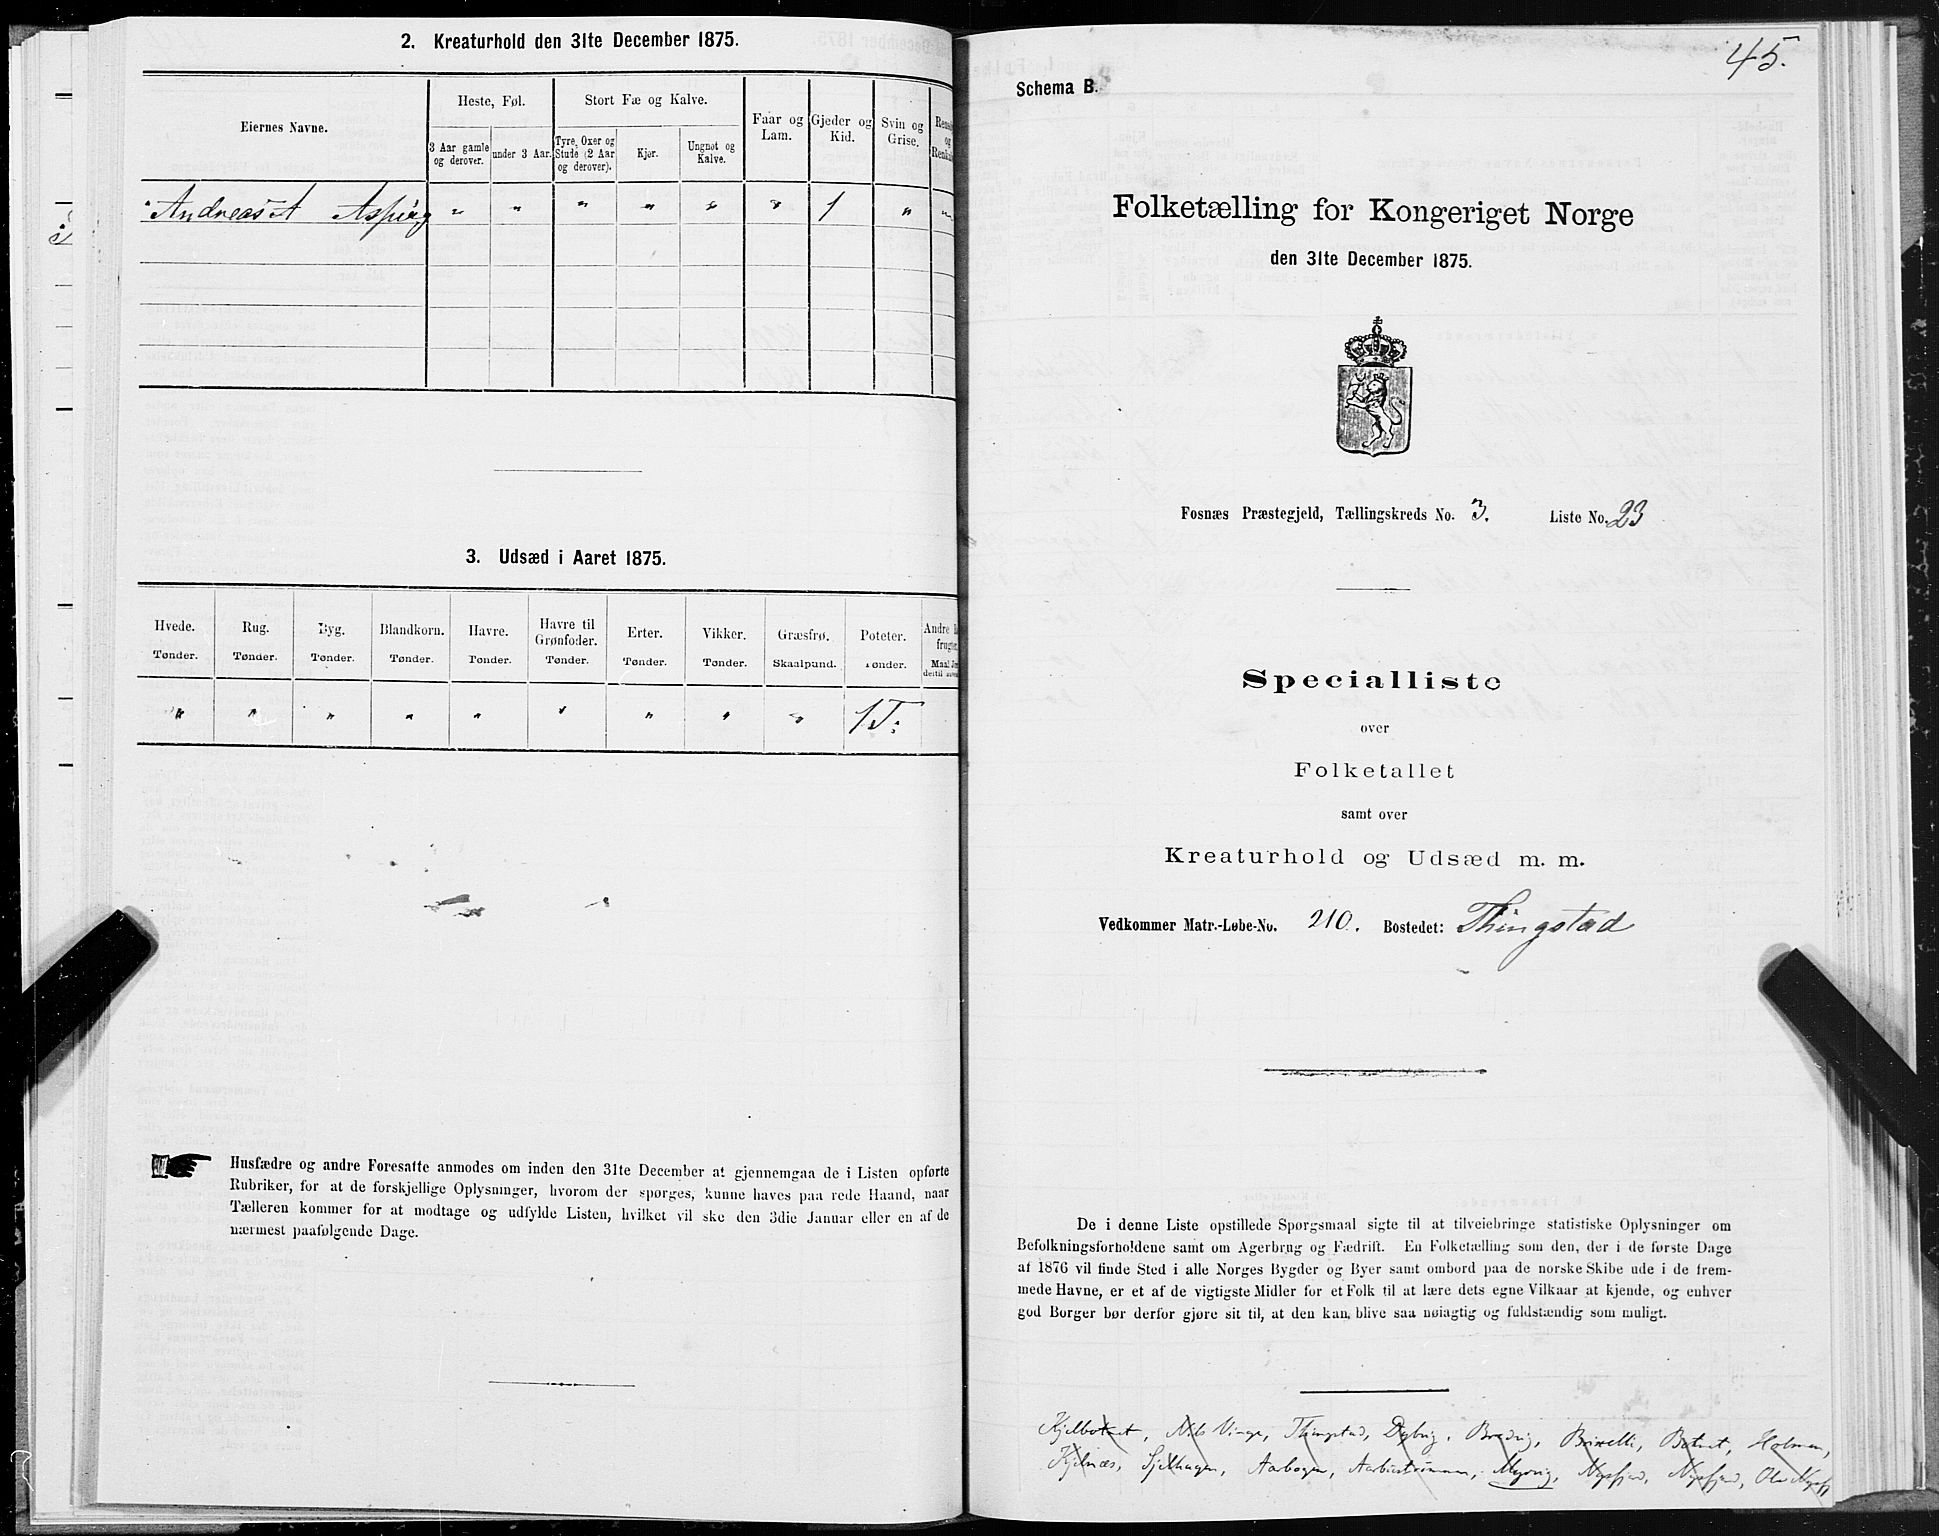 2. Kreaturhold den 31te December 1875.
Eiernes Navne.
Heste, Føl.
3 Aar gamle og derover.
under 3 Aar.
Stort Fæ og Kalve.
Tyre, Oxer og Stude (2 Aar og derover).
Kjør.
Ungnøt og Kalve.
Faar og Lam.
Gjeder og Kid.
Svin og Grise.
og
Andreas A Aspvig " " " " " " 1 " "
3. Udsæd i Aaret 1875.
Hvede. Rug. Byg. Blandkorn. Havre. Havre til Grønfoder. Erter. Vikker. Græsfrø. Poteter. Andre
Tønder. Tønder. Tønder. Tønder. Tønder. Tønder. Tønder. Tønder. Skaalpund. Tønder. Maal
" " " " " " " " " 1 T:
Husfædre og andre Foresatte anmodes om inden den 31te December at gjennemgaa de i Listen opførte
Rubriker, for at de forskjellige Oplysninger, hvorom der spørges, kunne haves paa rede Haand, naar
Tælleren kommer for at modtage og udfylde Listen, hvilket vil ske den 3die Januar eller en af de
nærmest paafølgende Dage.
45.
Schema B.
Folketælling for Kongeriget Norge
den 31te December 1875.
Fosnæs Præstegjeld, Tællingskreds No. 3. Liste No. 23
Specialliste
over
Folketallet
samt over
Kreaturhold og Udsæd m. m.
Vedkommer Matr.-Løbe-No. 210. Bostedet: Thingstad
De i denne Liste opstillede Spørgsmaal sigte til at tilveiebringe statistiske Oplysninger om
Befolkningsforholdene samt om Agerbrug og Fædrift. En Folketælling som den, der i de første Dage
af 1876 vil finde Sted i alle Norges Bygder og Byer samt ombord paa de norske Skibe ude i de frem-
mede Havne, er et af de vigtigste Midler for et Folk til at lære dets egne Vilkaar at kjende, og enhver
god Borger bør derfor gjøre sit til, at den kan blive saa nøiagtig og fuldstændig som muligt.
Kjelbotnet, Thingstad, Botnet, Holmen,
Kjelnæs, Sjelhagen, Aarbogen, Myrvig, Nypfjord, Nypfjord, Ola